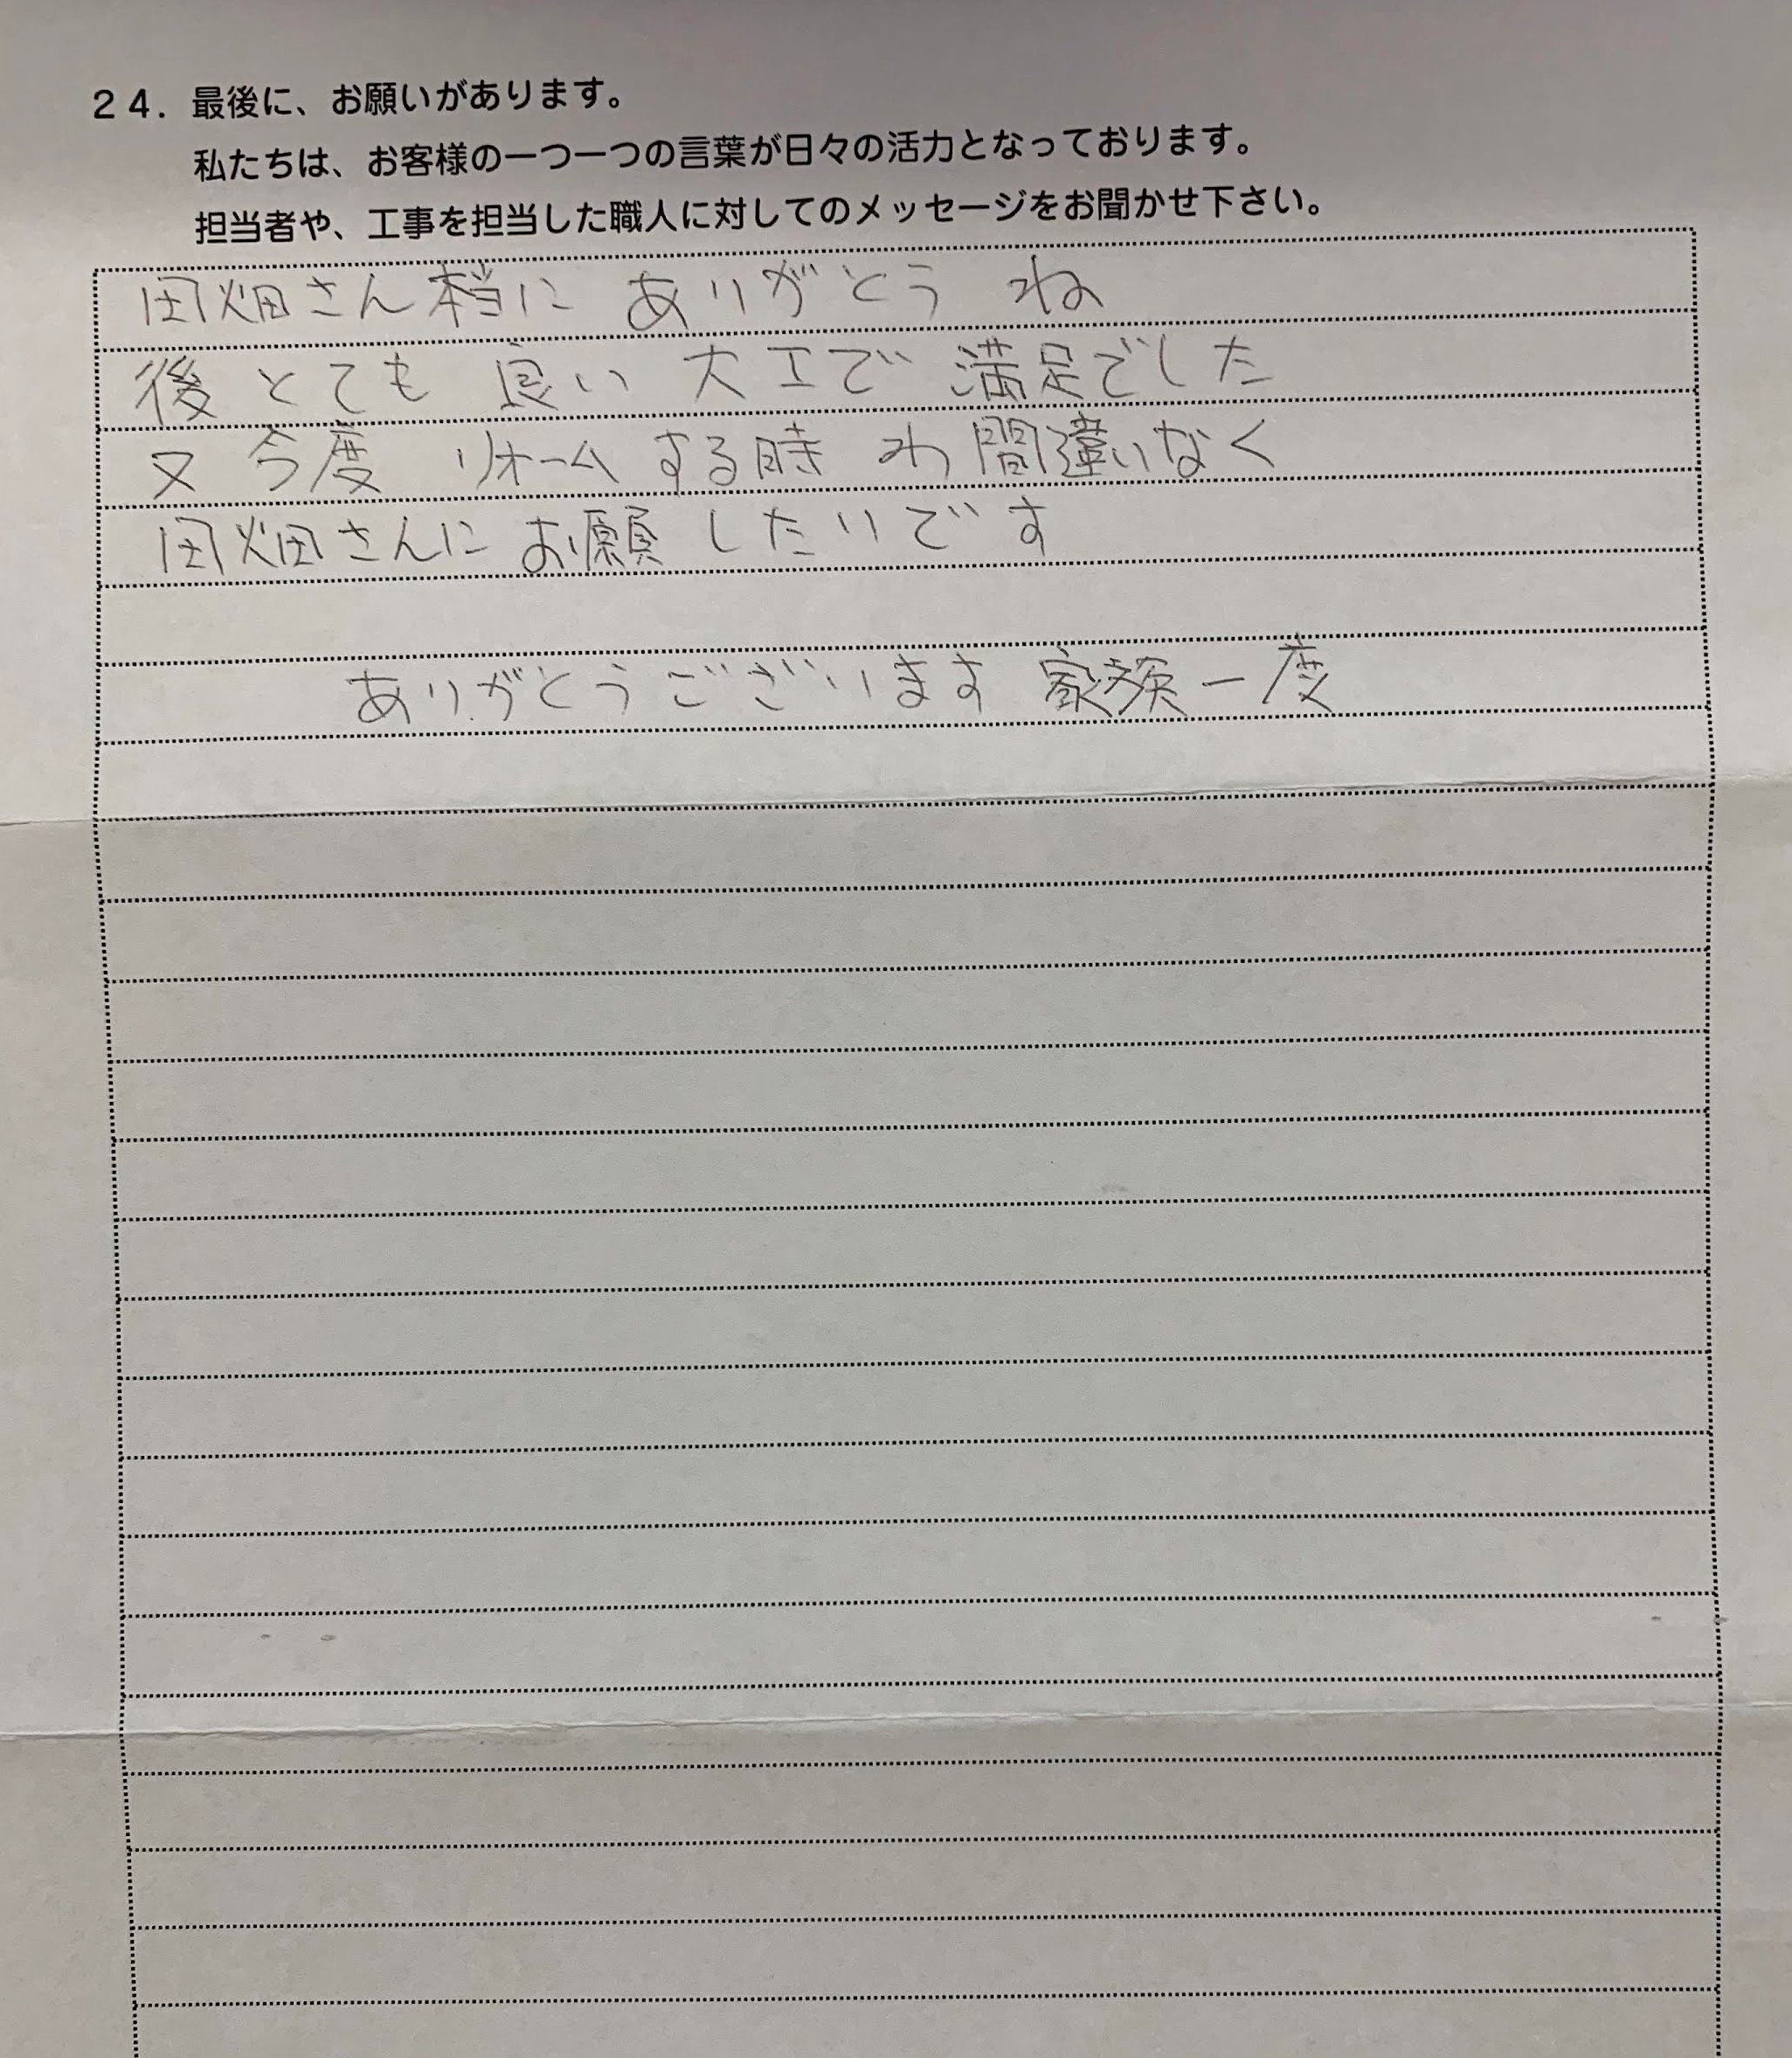 ２４．最後に、お願いがあります。
私たちは、お客様の一つ一つの言葉が日々の活力となっております。
担当者や、工事を担当した職人に対してのメッセージをお聞かせ下さい。
田畑さん本当に ありがとう ね
後 とても 良い 大工で 満足でした
又 今度 リホーム する時 わ 間違いなく
田畑さんに お願 したいです
ありがとうございます 家族一度